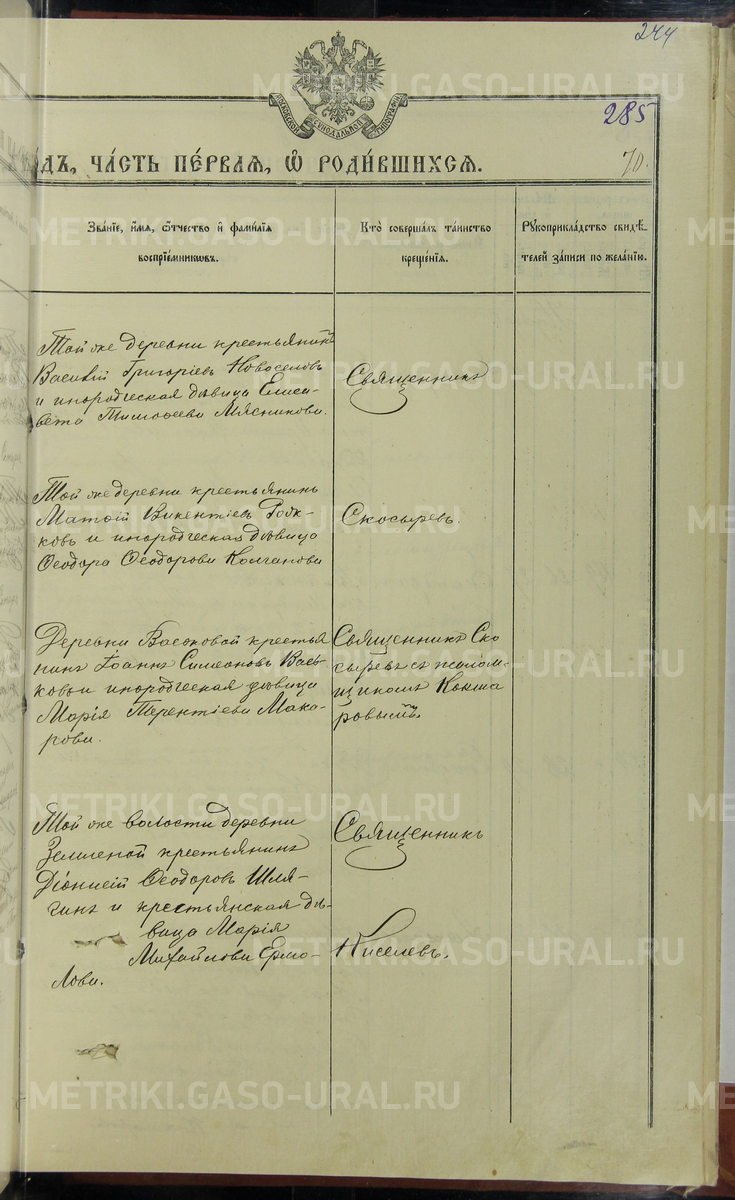 244
285
70.
МОСКОВСКОЙ СѴНОДАЛЬНОЙ ТИПОГРАФІИ
ДЪ, ЧА́СТЬ ПЕ́РВАЯ, Ѡ҆ РОДИ́ВШИХСЯ.
Зва́нїе, и҆́мя, ѻ҆́тчество и҆ фами́лїя
воспрїе́мникѡвъ.
Кто̀ соверша́лъ та́инство
креще́нїя.
Рꙋкоприкла́дство свидѣ́-
телей за́писи по жела́нїю.
Той же деревни крестьянинъ
Василій Григоріевъ Новоселовъ
и инородческая дѣвица Елиса-
вета Тимоѳеева Мясникова.
Священникъ
Той же деревни крестьянинъ
Матѳій Викентіевъ
ковъ и инородческая дѣвица
Ѳеодора Ѳеодорова Колчанова
Скосыревъ.
Деревни Васьковой крестья
нинъ Іоаннъ Симеоновъ Вась-
ковъ и инородческая дѣвица
Марія Терентіева Мака-
рова.
Священникъ Ско
сыревъ съ псалом-
щикомъ Кокша
ровымъ
Той же волости деревни
крестьянинъ
Діонисій Ѳеодоровъ Шля-
гинъ и крестьянская дѣ-
вица Марія
Михайлова Ермо-
лова.
Священникъ
Киселевъ.
METRIKI.GASO-URAL.RU